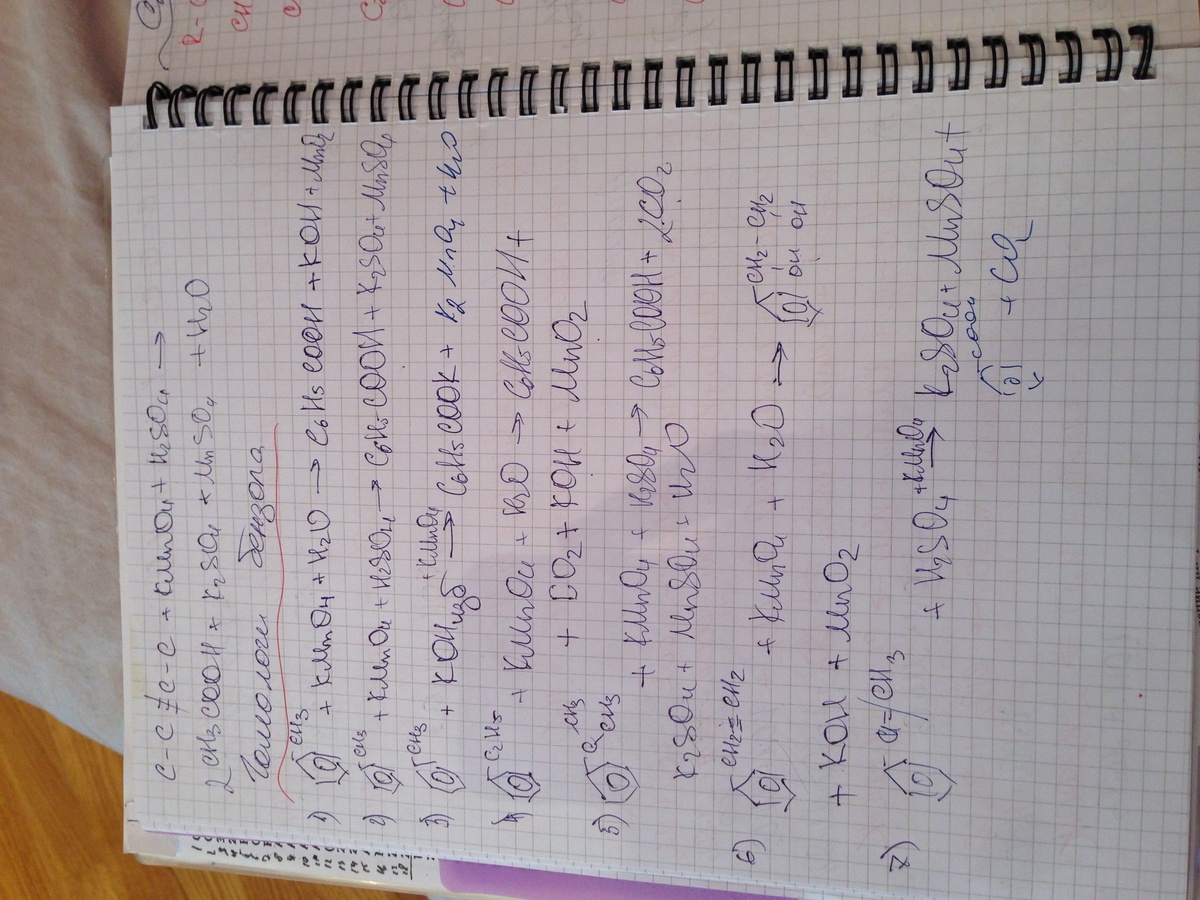 C-C≠C-C + KMnO4 + H2SO4 →
2CH3COOH + K2SO4 + MnSO4 + H2O
Гомологи бензола
1) CH3 + KMnO4 + H2O → C6H5COOH + KOH + MnO2
2) CH3 + KMnO4 + H2SO4 → C6H5COOH + K2SO4 + MnSO4
3) CH3 + KOH изб +KMnO4 → C6H5COOK + K2MnO4 + H2O
4) C2H5 + KMnO4 + H2O → C6H5COOH +
+ CO2 + KOH + MnO2
5) CH3 CH3 + KMnO4 + H2SO4 → C6H5COOH + 2CO2
K2SO4 + MnSO4 + H2O
6) CH2=CH2 + KMnO4 + H2O → CH2-CH2
OH OH
+ KOH + MnO2
7) CH=/CH3 + H2SO4 +KMnO4 → K2SO4 + MnSO4 +
COOH + CO2